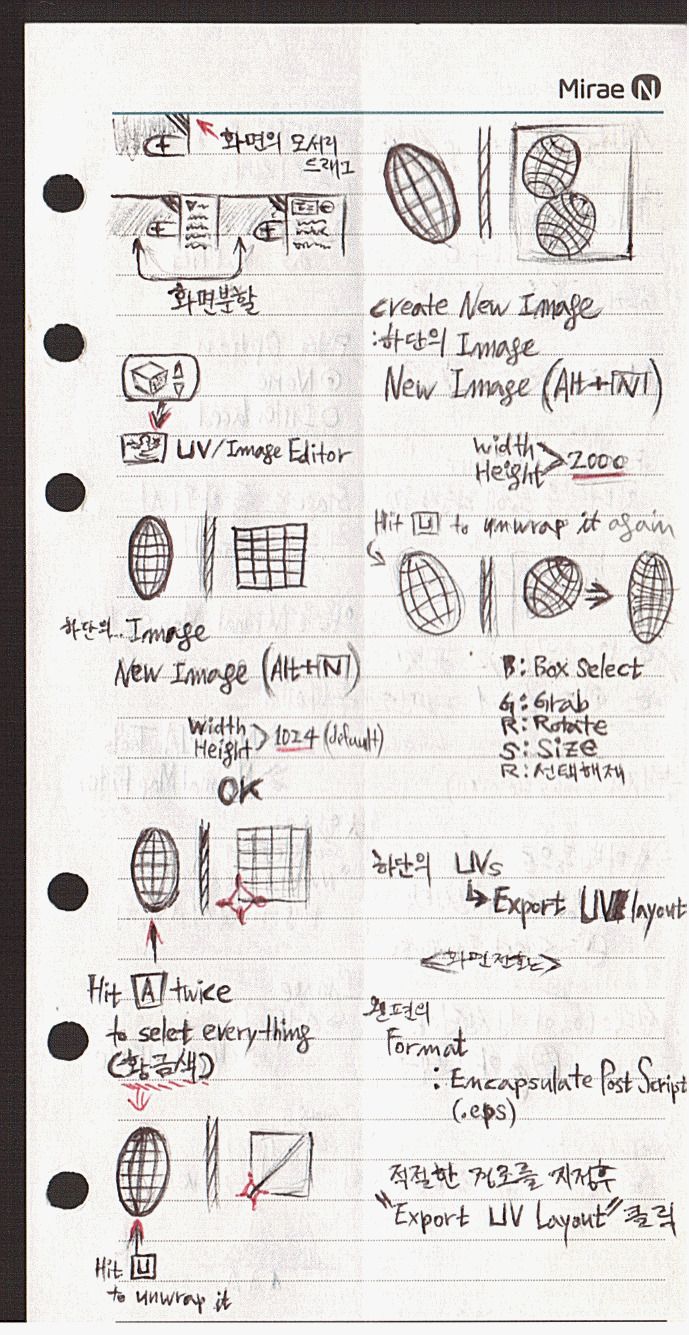 Mirae N
화면의 모서리
드래그
화면분할
UV/Image Editor
하단의.. Image
New Image (Alt+N)
Width
Height > 1024 (default)
OK
Hit A twice
to selet everything
(황금색)
Hit U
to unwrap it
create New Image
:하단의 Image
New Image (Alt+N)
Width
Height > 2000
Hit U to unwrap it again
B: Box Select
G: Grab
R: Rotate
S: Size
R: 선택해제
하단의 UVs
Export UV layout
<화면전환>
왼편의
Format
: Encapsulate Post Script
(.eps)
적절한 경로를 지정후
"Export UV Layout" 클릭